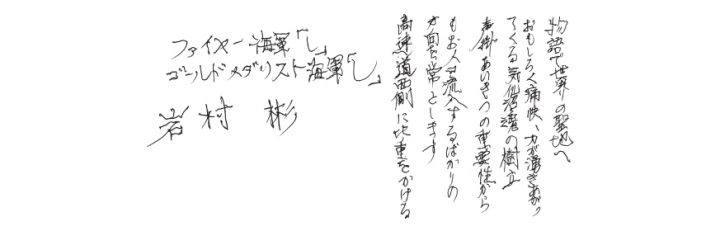 物語で世界の聖地へ
おもしろく痛快、力が湧きあがっ
てくる気仙沼達の樹立
声掛あいさつの重要性から
もお人は流入するばかりの
方面を常とします
高速道西側に比重をかける
ファイヤー海軍「し」
ゴールドメダリスト海軍「し」
岩村 彬